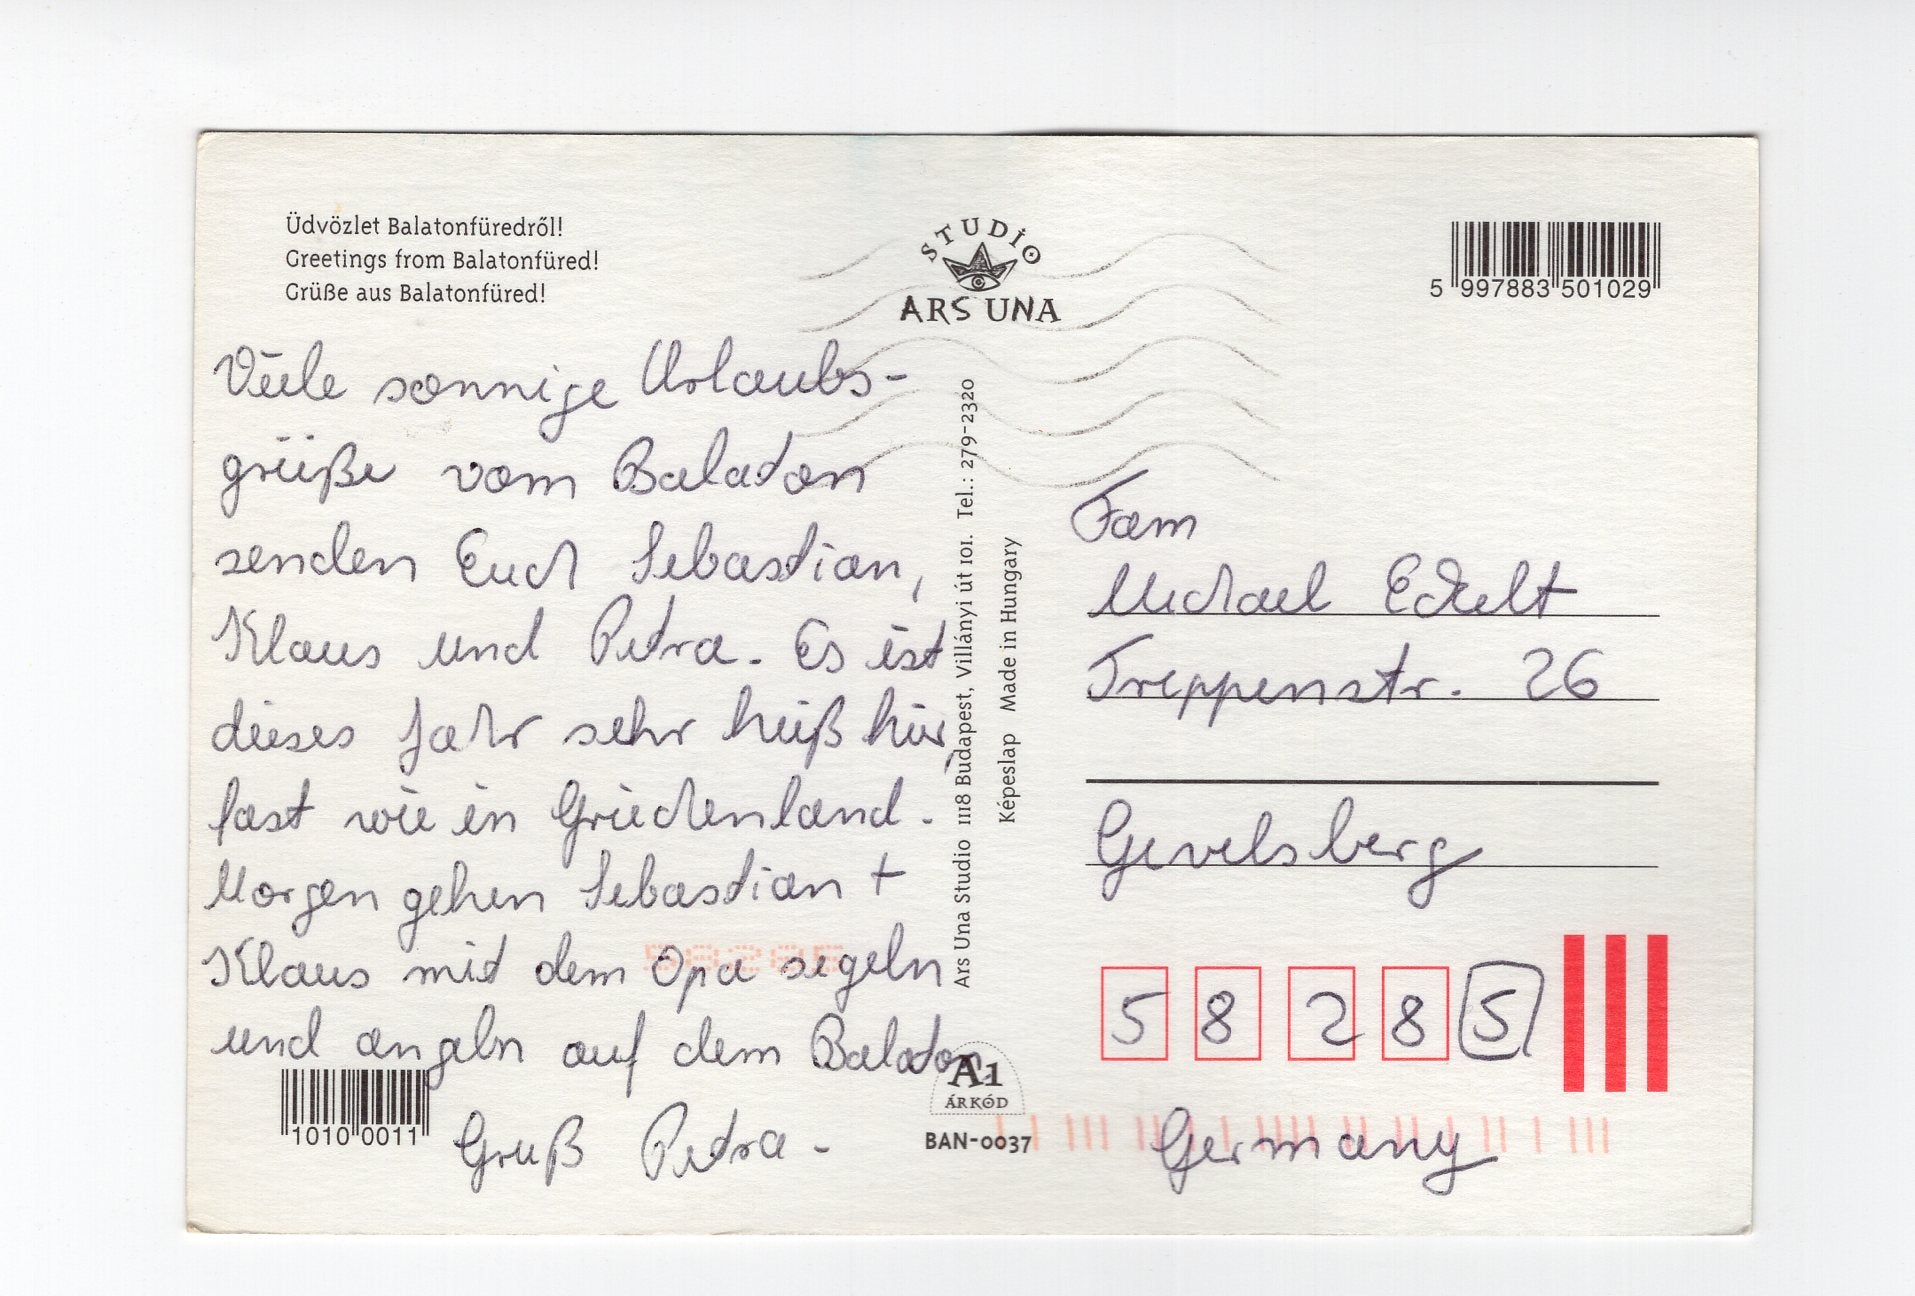 Üdvözlet Balatonfüredről!
Greetings from Balatonfüred!
Grüße aus Balatonfüred!
Viele sonnige Urlaubs-
grüße vom Balaton
senden Euch Sebastian,
Klaus und Petra. Es ist
dieses Jahr sehr heiß hier,
fast wie in Griechenland.
Morgen gehen Sebastian +
Klaus mit dem Opa segeln
und angeln auf dem Balaton.
Gruß Petra -
1010 0011
STUDIO
ARS UNA
Ars Una Studio 1118 Budapest, Villányi út 101. Tel.: 279-2320
Képeslap Made in Hungary
A1
ÁRKÓD
BAN-0037
5 997883 501029
Fam
Michael Eckelt
Treppenstr. 26
Gevelsberg
5 8 2 8 5
Germany
58285